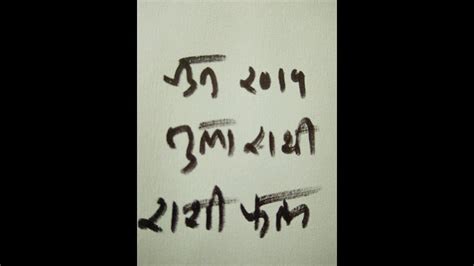 जून २०१९
तुला राशी
राशी फल